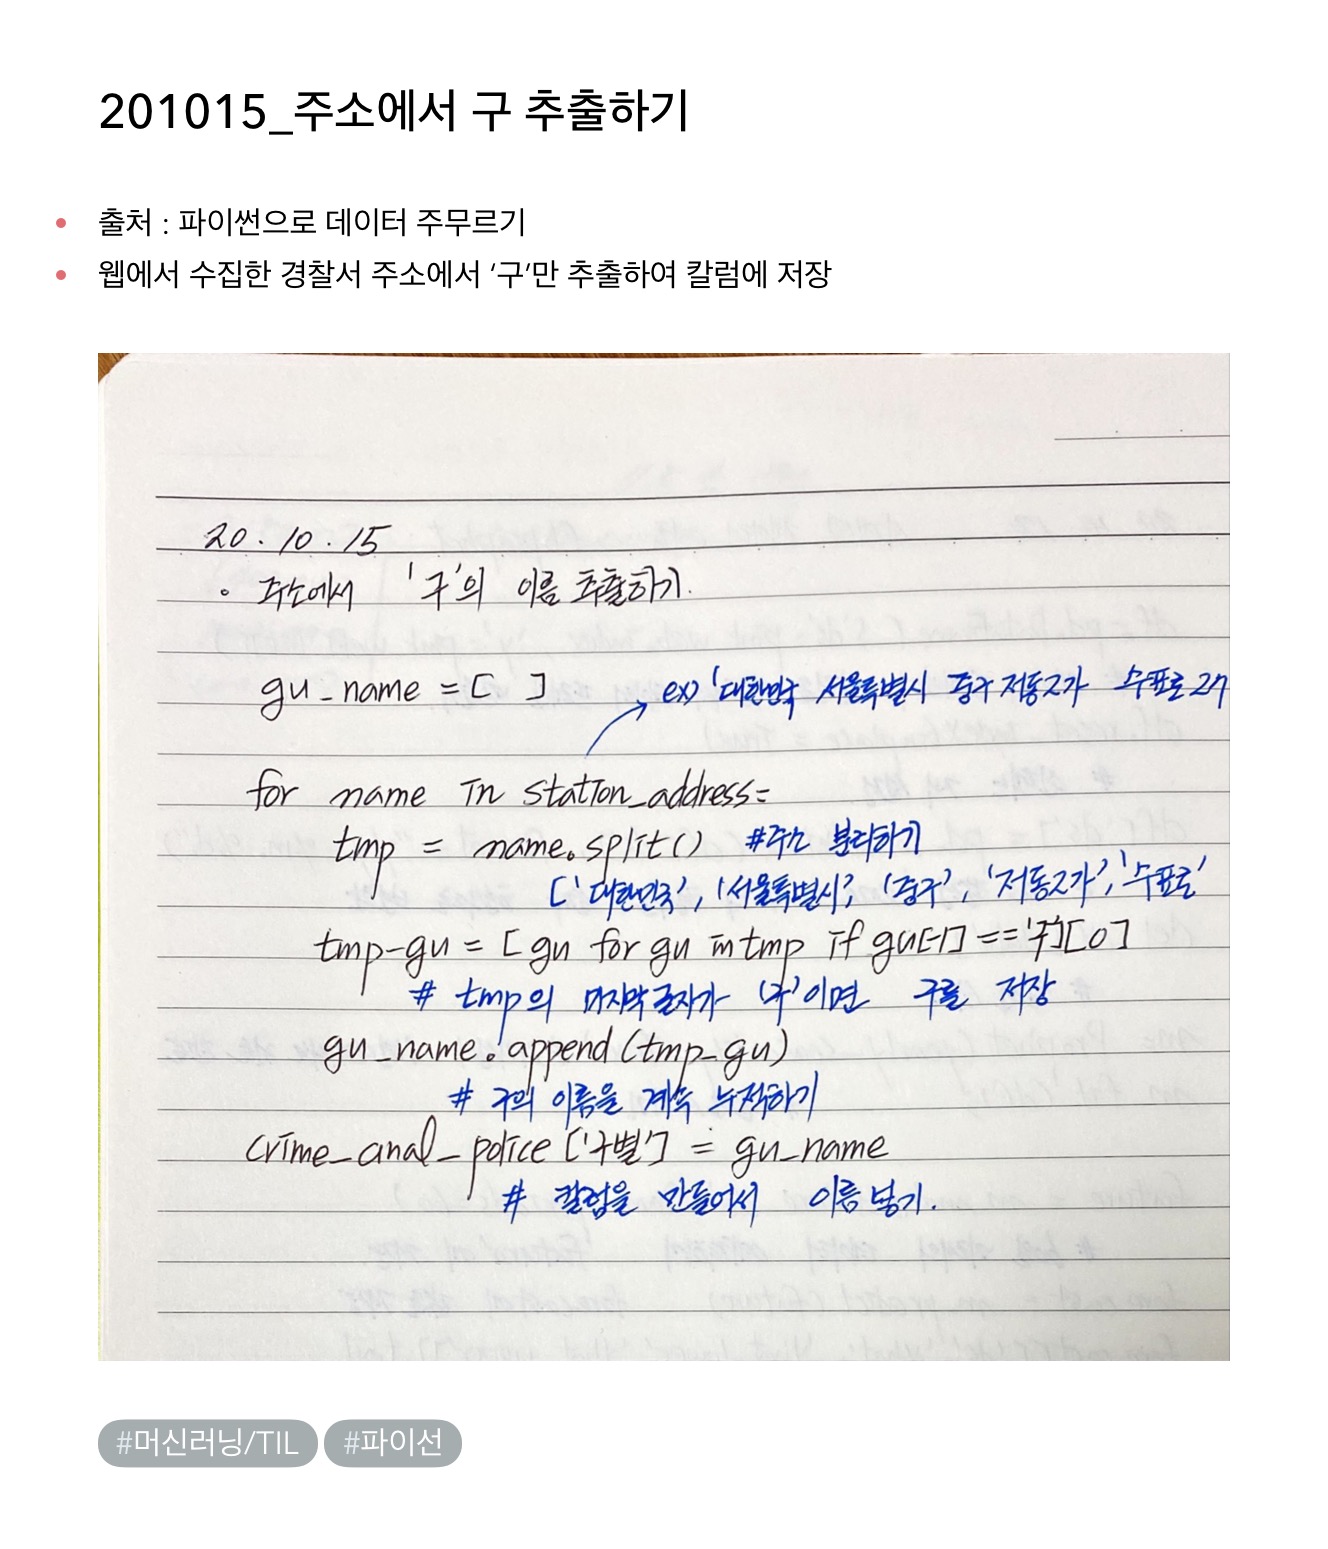 201015_주소에서 구 추출하기
출처 : 파이썬으로 데이터 주무르기
웹에서 수집한 경찰서 주소에서 ‘구’만 추출하여 칼럼에 저장
20. 10. 15
주소에서 '구'의 이름 추출하기.
gu_name = [ ]
ex) '대한민국 서울특별시 중구 저동2가 수표로 27
for name in station_address:
tmp = name.split() #주소 분리하기
['대한민국', '서울특별시', '중구', '저동2가', '수표로'
tmp-gu = [gu for gu in tmp if gu[-1] == '구'][0]
# tmp의 마지막 글자가 '구'이면 구를 저장
gu_name.append(tmp_gu)
# 구의 이름을 계속 누적하기
crime_anal_police ['구별'] = gu_name
# 칼럼을 만들어서 이름 넣기.
#머신러닝/TIL #파이선